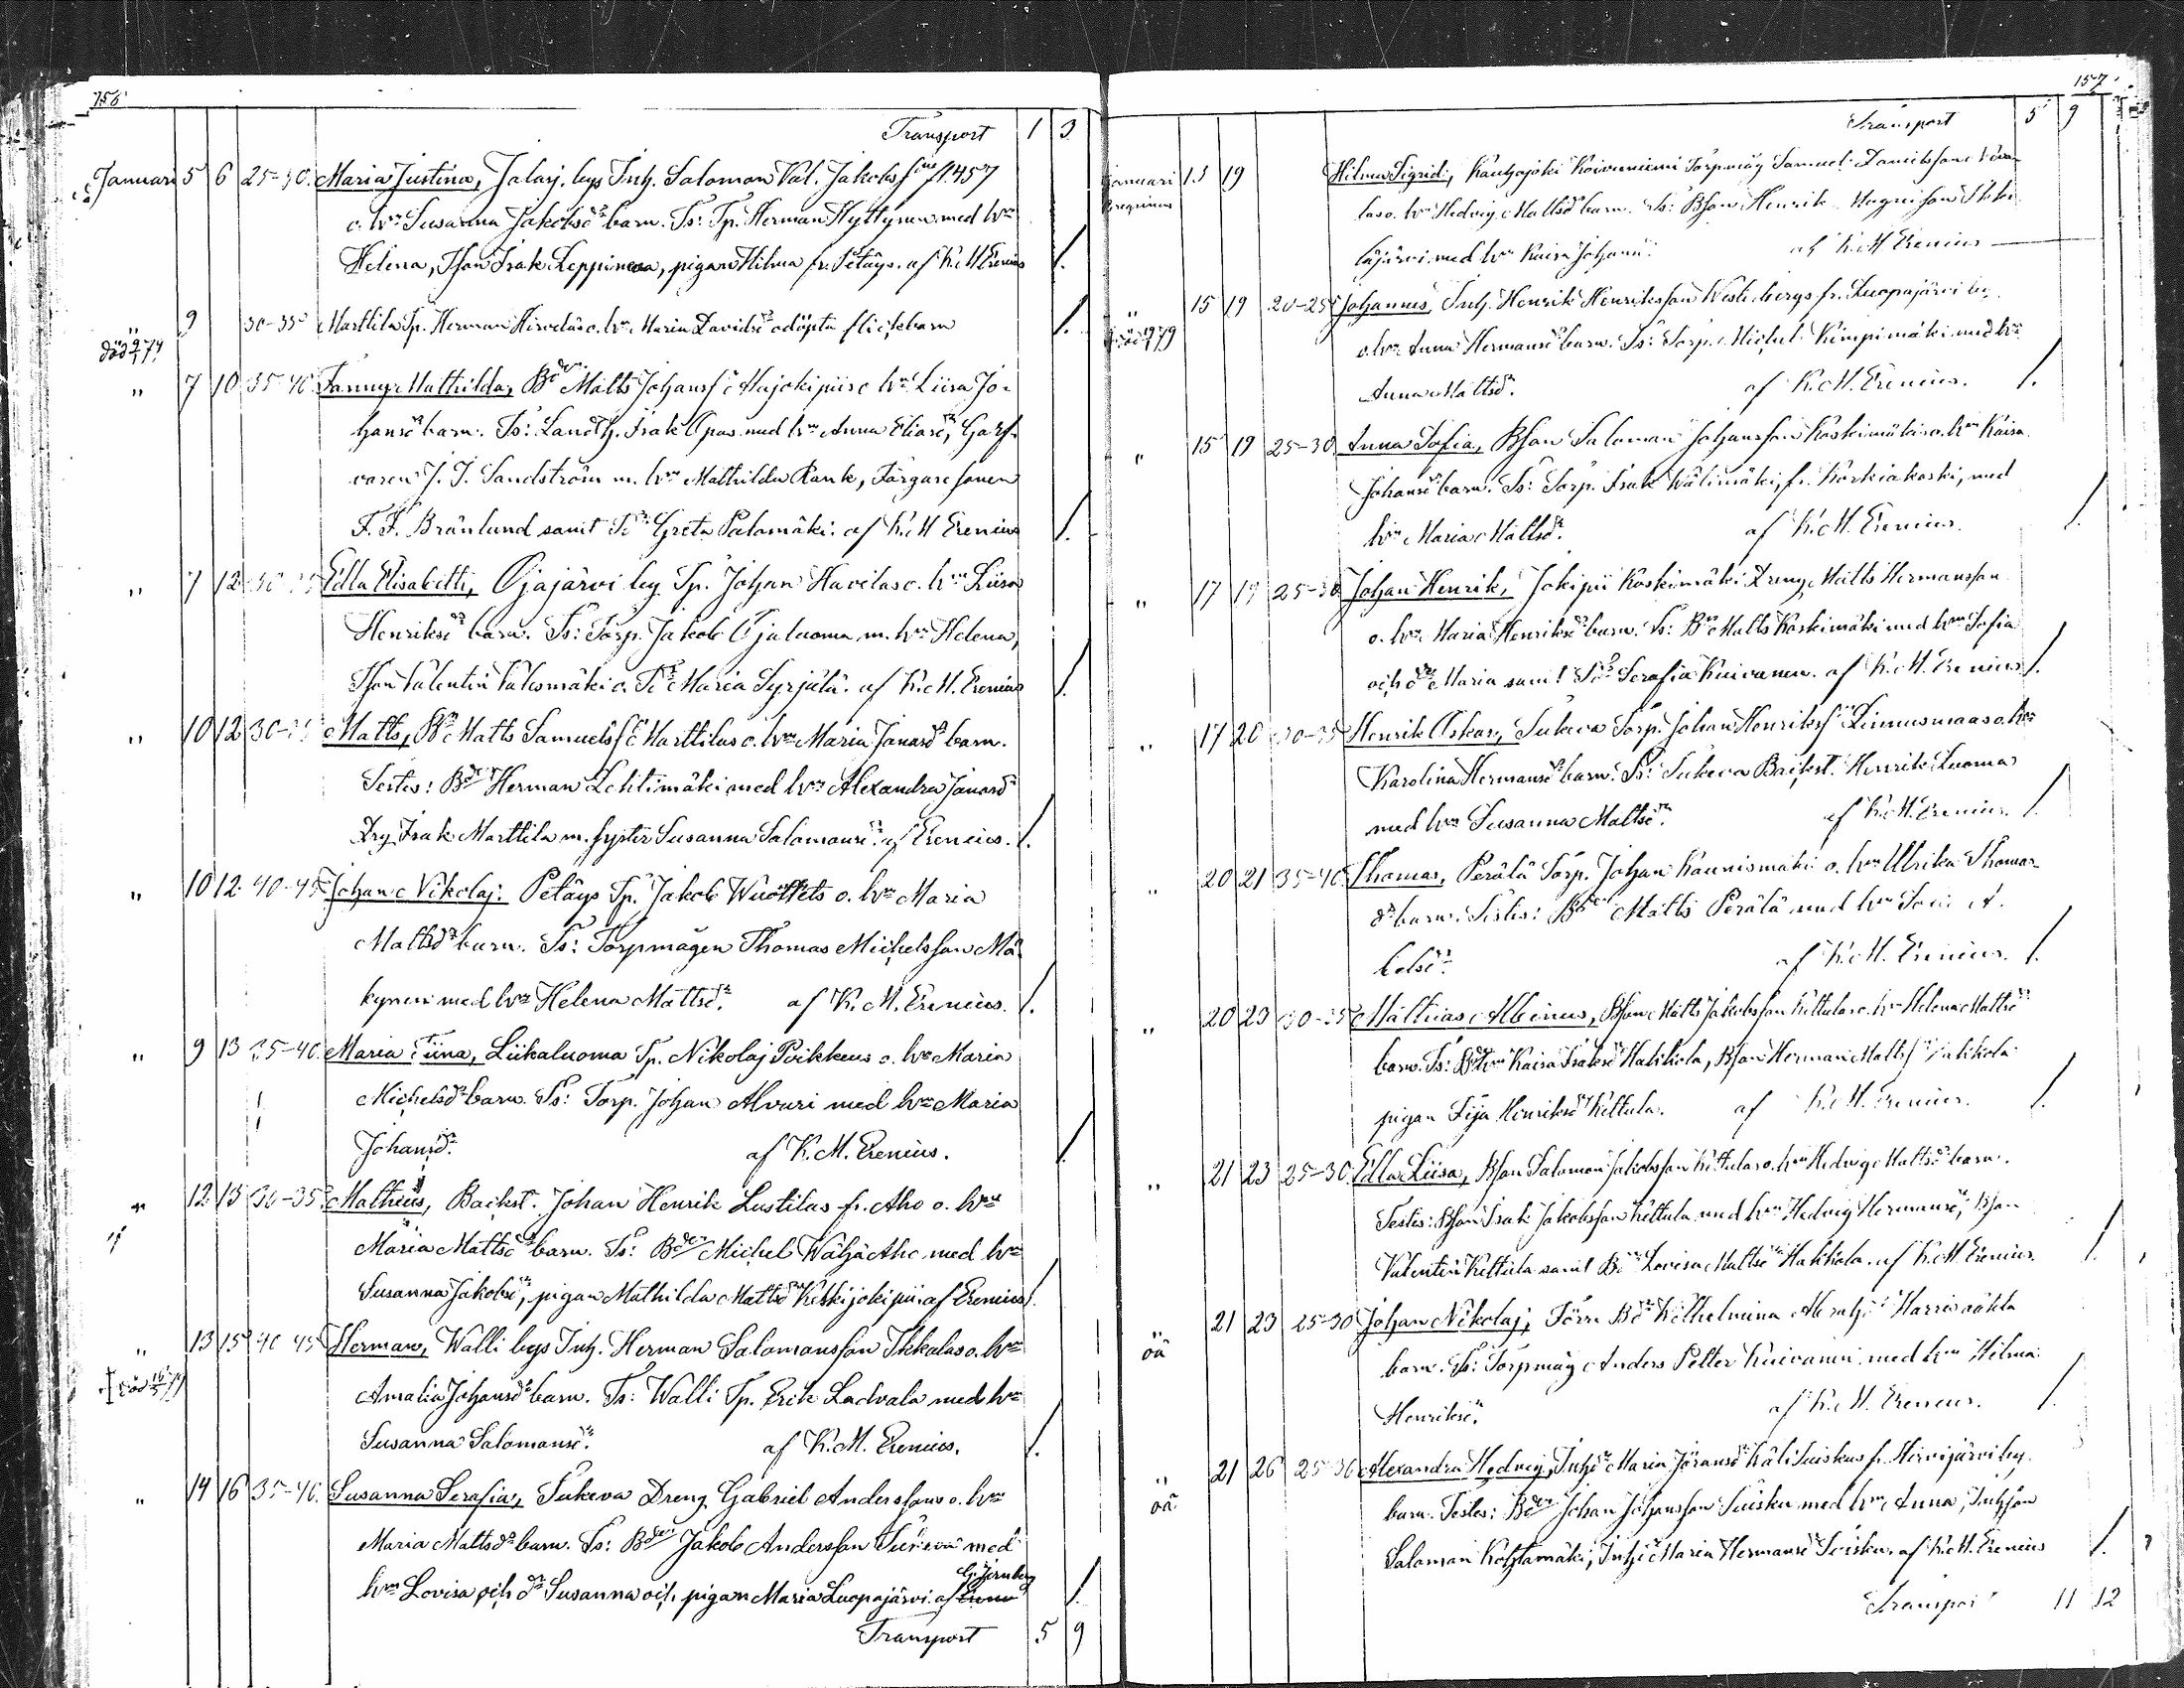 156
Transport 1 3
Januari 5 6 25-30. Maria Justina, Jalasj. bys Inh. Salomon Val. Jakobss fl. 457
o. hrs Susanna Jakobsdr barn. Ts: Tp. Herman Hyttynen med hru
Helena, Json Isak Leppinen, pigan Hilma fr. Petäys. af K. M. Erenius /.
" 9 30-35 Marttila Tp. Herman Hirvelas o. hrs Maria Davidsd odöpta flickebarn /.
död 9/1 79
" 7 10 35-40. Fanny Mathilda, Bden Matts Johanss Hajokipiis o hrs Liisa Jo-
hansdr barn. Ts: Landth. Isak Opas med hru Anna Eliasdr, Garf-
varen J. J. Sandström m. hru Mathilda Rank, Färgaresonen
F. F. Bränlund samt Greta Palomäki. af K. M Erenius /.
" 7 12 30-35 Edla Elisabetth, Ojajärvi by Tp. Johan Havilas o. hrs Liisa
Henriksdr barn. Ts: Torp. Jakob Ojaluoma m. hru Helena,
Json Valentin Valesmäki o. Maria Syrjälä. af K. M. Erenius /.
" 10 12 30-35 Matts, Bdn Matts Samuelss Marttilas o. hrs Maria Janasdr barn.
Testes: Bden Herman Lehtimäki med hru Alexandra Janasdr
Drg Isak Marttila m. syster Susanna Salomonsdr. af Erenius. /.
" 10 12 40-45 Johan Nikolaj. Petäys Tp. Jakob Wuoltets o. hrs Maria
Mattsdr barn. Ts: Torpmågen Thomas Michelsson Mä-
kynen med hru Helena Mattsdr. af K. M. Erenius. /.
" 9 13 35-40. Maria Tiina, Liikaluoma Tp. Nikolaj Poikkeus o. hrs Maria
Michelsdr barn. Ts: Torp. Johan Alvari med hru Maria
Johansdr. af K. M. Erenius. /.
" 12 15 30-35 Matheus, Backst. Johan Henrik Lustilas fr. Aho o. hrs
Maria Mattsdr barn. Ts: Bden Michel Wähä Aho med hru
Susanna Jakobsdr, pigan Mathilda Mattsdr Keskijokipii. af Erenius /.
" 13 15 40-45 Herman, Walli bys Inh. Herman Salomonsson Ikkalas o. hrs
död 16/5 79
Amalia Johansdr barn. Ts: Walli Tp. Erik Ladvala med hru
Susanna Salomonsdr. af K. M. Erenius. /.
" 14 16 35-40. Susanna Serafia, Sukeva Dreng Gabriel Anderssons o. hrs
Maria Mattsdr barn. Ts: Bden Jakob Andersson Sukeva med
hru Lovisa och dr Susanna och pigan Maria Luopajärvi. af G. Jernberg /.
Transport 5 9
157
Transport 5 9
Januari 13 19 Hilma Sigrid, Kauhajoki Koivuniemi Torpmåg Samuel Danielsson
las o. hrs Hedvig Mattsdr barn. Ts: Bson Henrik
lajärvi med hru Kaisa Johansdr. af K. M Erenius
" 15 19 20-25 Johannes, Inh. Henrik Henriksson Westerbergs fr. Luopajärvi by
o. hrs Anna Hermansdr barn. Ts: Torp. Michel Kimpimäki med hru
Anna Mattsdr. af K. M. Erenius. /.
" 15 19 25-30 Anna Sofia, Bson Salomon Johansson Koskimäkis o. hrs Kaisa
Johansdr barn. Ts: Torp. Isak Wälimäki, fr. Korkiakoski, med
hru Maria Mattsdr. af K. M. Erenius. /.
" 17 19 25-30 Johan Henrik, Jokipii Koskimäki Dreng Matts Hermansson
o. hrs Maria Henriksdr barn. Ts: Bdn Matts Koskimäki med hru Sofia
och dr Maria samt Serafia Kuivanen. af K. M. Erenius /.
" 17 20 30-35 Henrik Oskar, Sukeva Torp. Johan Henrikss Linnusmaas o hrs
Karolina Hermansdr barn. Ts: Sukeva Backst. Henrik Luoma
med hru Susanna Mattsdr. af K. M. Erenius. /.
" 20 21 35-40 Thomas, Perälä Torp. Johan Kaunismäki o. hrs Ulrika Thomas-
dr barn. Testes: Bden Matts Perälä med hru
kobsdr. af K. M. Erenius. /.
" 20 23 30-35 Matthias Albinus, Bson Matts Jakobsson Kittulas o. hrs Helena Mattsdr
barn. Ts: Kaisa Isaksdr Hakkola, Bson Herman Mattss Hakkola
pigan Fija Henriksdr Kittula. af K. M. Erenius. /.
" 21 23 25-30. Edla Liisa, Bson Salomon Jakobsson Kittulas o. hrs Hedvig Mattsdr barn.
Testes: Bson Isak Jakobsson Kittula med hru Hedvig Hermansdr, Bson
Valentin Kittula samt Lovisa Mattsdr Hakkola. af K. M Erenius. /.
" 21 23 25-30 Johan Nikolaj, Wilhelmina
oä
barn. Ts: Torpmåg Anders Petter Kuivanen med hru Hilma
Henriksdr. af K. M. Erenius. /.
" 21 26 25-30 Alexandra Hedvig, Maria Göransdr Wäli Suiskus fr. Hirvijärvi by
oä
barn. Testes: Bden Johan Johansson Suisku med hru Anna, Inhson
Salomon Kohtamäki, Maria Hermansdr Suisku. af K. M. Erenius /.
Transport 11 12